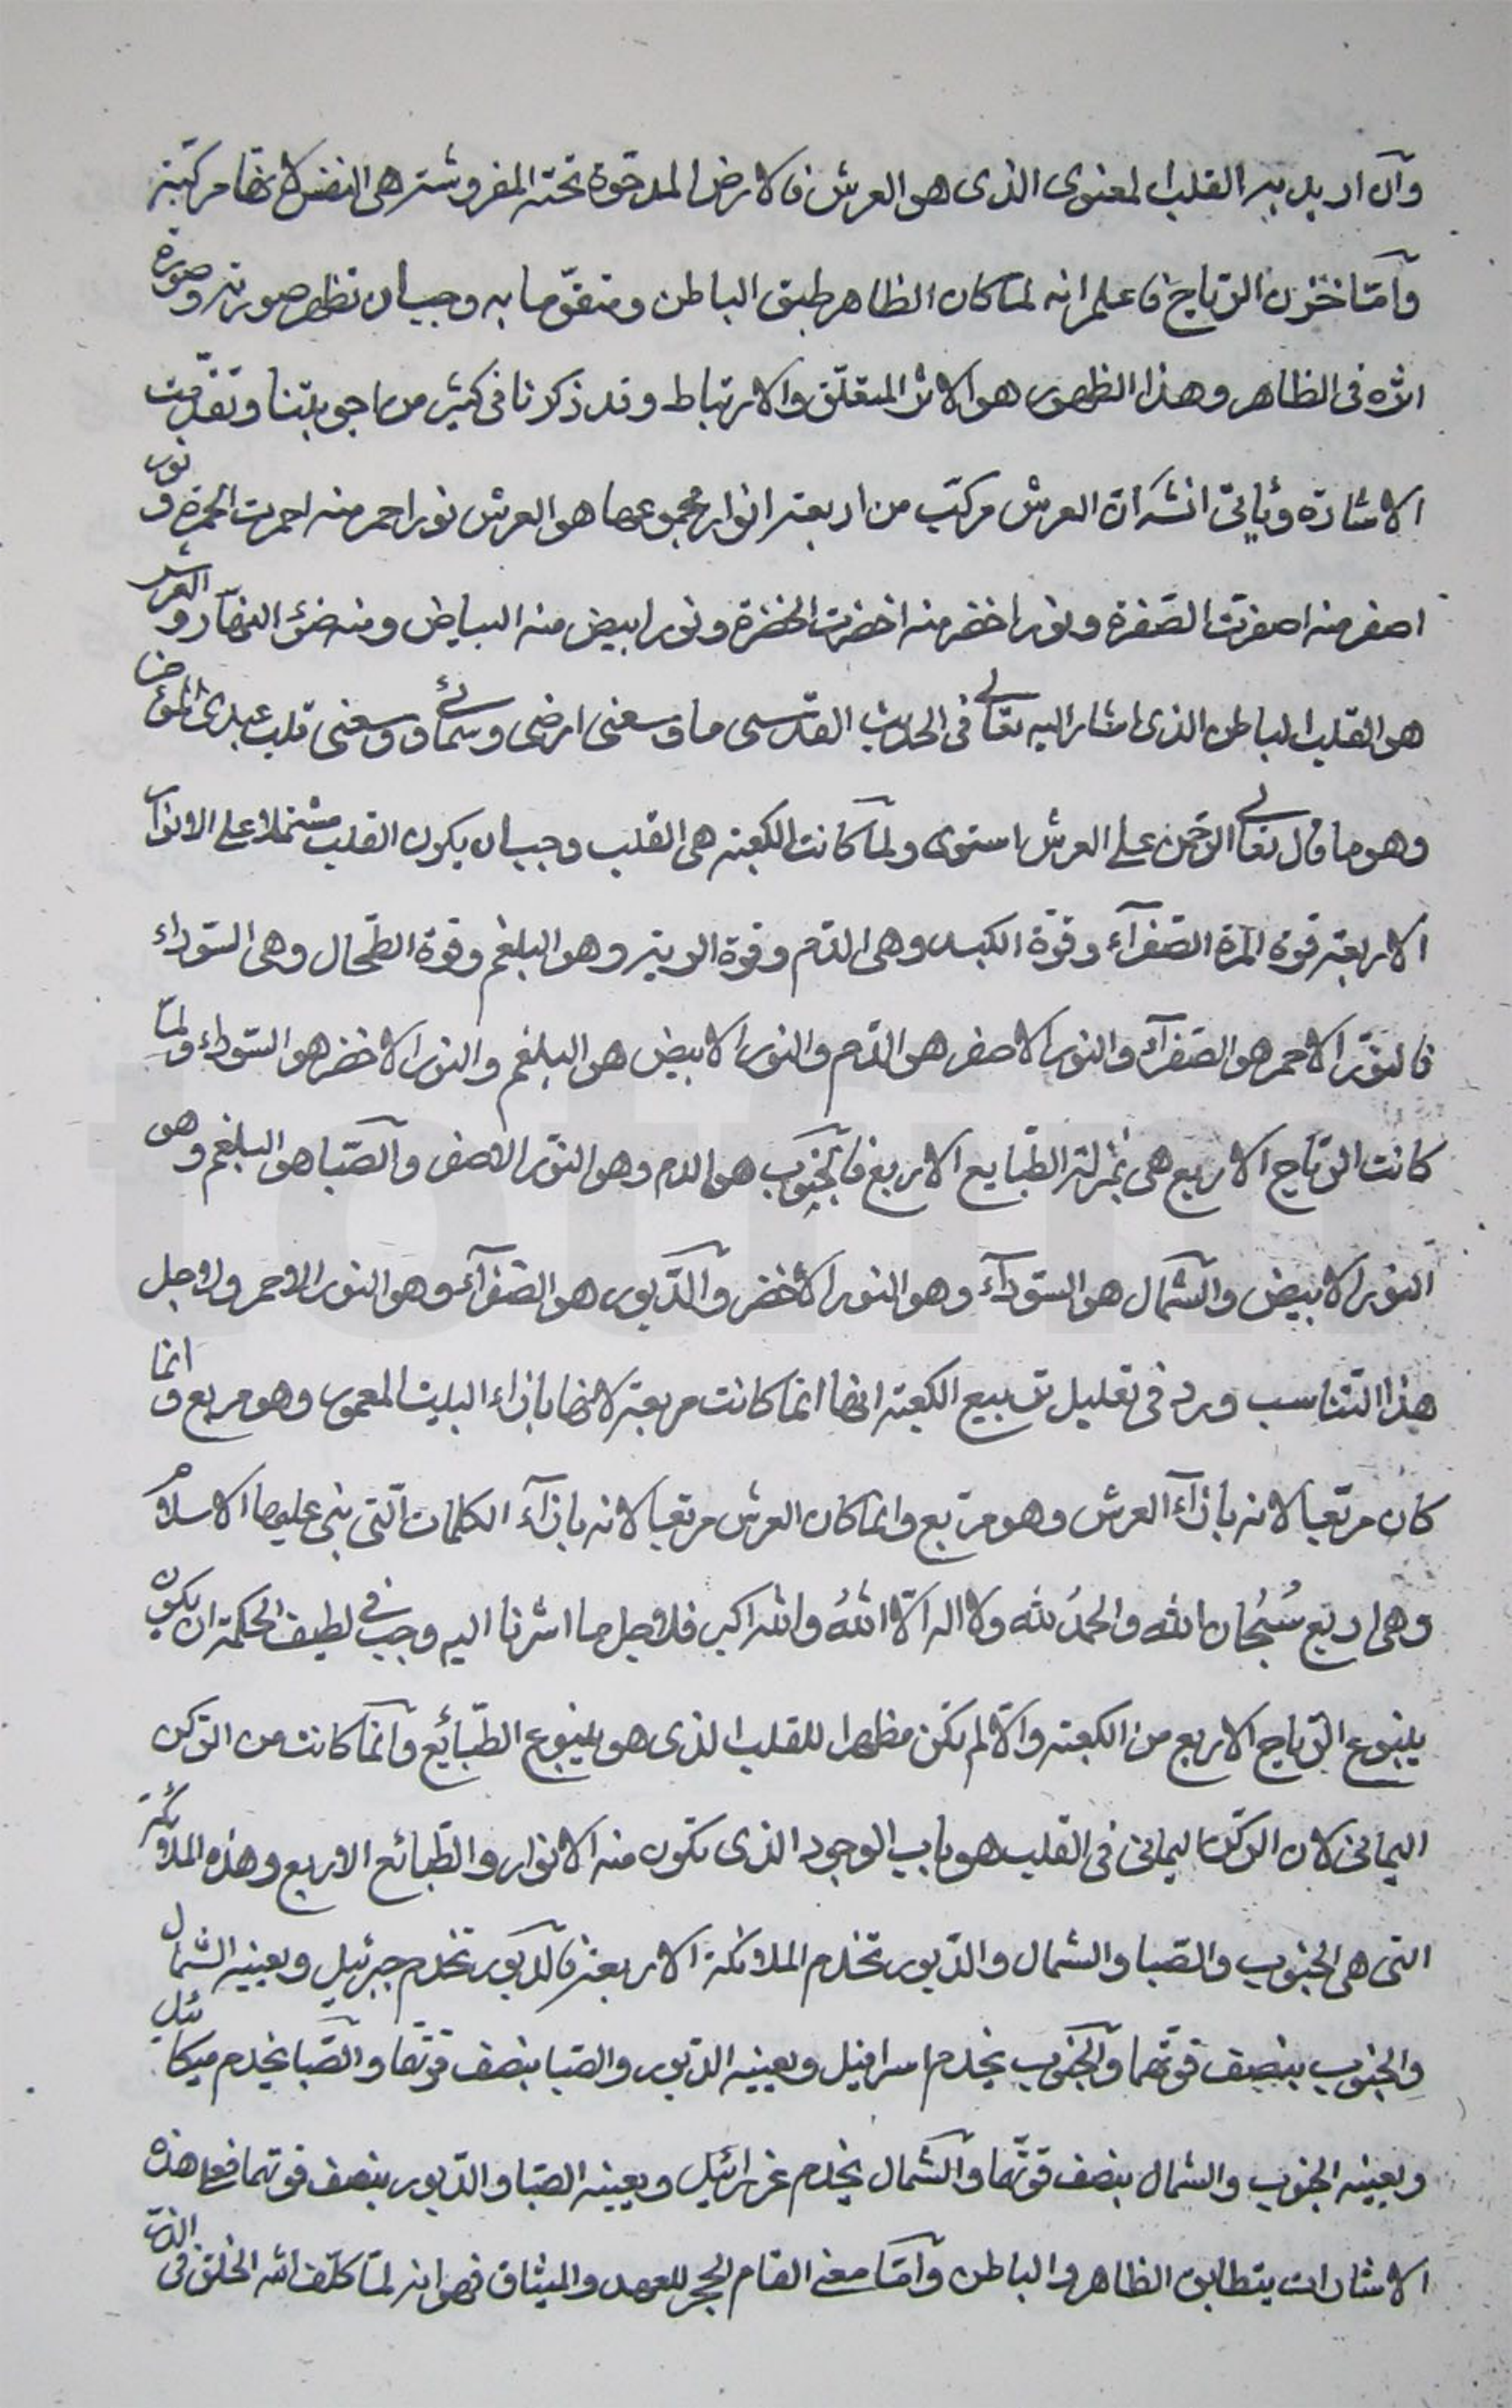 وان اريد به القلب المعنوى الذى هو العرش فالارض المدحوة تحته المفروشة هى النفس لانها مركبة
وامّا خزن الرّياح فاعلم انه لمّا كان الظاهر طبق الباطن ومتقوّما به وجب ان تظهر صورته وصورة
اثره فى الظاهر وهذا الظهور هو الاثر المتعلّق والارتباط وقد ذكرنا فى كثير من اجوبتنا وتقدّمت
الاشارة ويأتى انشَ ان العرش مركّب من اربعة انوار مجموعها هو العرش نور احمر منه احمرت الحمرة و نور
اصفر منه اصفرّت الصّفرة ونور اخضر منه اخضرت الخضرة ونور ابيض منه البياض ومنه ضوء النهار و العرش
هو القلب الباطن الذى اشار اليه تعالى فى الحديث القدسى ما وسعنى ارضى وسمائى ووسعنى قلب عبدى المؤمن
وهو ما قال تعالى الرّحمن على العرش استوى ولمّا كانت الكعبة هى القلب وجب ان يكون القلب مشتملا على الانوار
الاربعة قوة المرة الصّفرآء وقوّة الكبد وهى الدّم وقوة الرية وهو البلغم وقوة الطّحال وهى السّوداء
فالنّور الاحمر هو الصّفرآء والنور الاصفر هو الدّم والنور الابيض هو البلغم والنور الاخضر هو السّوداء ولمّا
كانت الرّياح الاربع هى بمنزلة الطّبايع الاربع فالجنوب هو الدم وهو النّور الاصفر والصّبا هو البلغم وهو
النور الابيض والشّمال هو السّودآء وهو النور الاخضر والدّبور هو الصّفرآء وهو النور الاحمر ولاجل
هذا التّناسب ورد فى تعليل تربيع الكعبة انها انما كانت مربعة لانها بازاء البيت المعمور وهو مربع و انما
كان مربّعا لانه بازآء العرش وهو مربّع وانما كان العرش مربّعا لانه بازآء الكلمات الّتى بنى عليها الاسلام
وهى اربع سُبْحان الله والحمدُ لله ولا اله الّا اللهُ والله اكبر فلاجل ما اشرنا اليه وجب فى لطيف الحكمة ان يكون
ينبوع الرّياح الاربع من الكعبة والّا لم تكن مظهرا للقلب الذى هو ينبوع الطّبائع وانّما كانت من الرّكن
اليمانى لان الركن اليمانى فى القلب هو باب الوجود الذى تكون منه الانوار والطّبائع الاربع وهذه الملائكة
التى هى الجنوب والصّبا والشمال والدّبور تخدم الملائكة الاربعة فالدبور تخدم جبرئيل ويعينه الشمال
والجنوب بنصف قوّتهما والجنوب يخدم اسرافيل ويعينه الدّبور والصّبا بنصف قوّتهما والصّبا يخدم ميكائيل
ويعينه الجنوب والشمال بنصف قوّتهما والشّمال يخدم عزرائيل ويعينه الصّبا والدّبور بنصف قوتهما فعلى هذه
الاشارات يتطابق الظاهر والباطن وامّا معنى القام الحجر للعهد والميثاق فهو انه لمّا كلّف الله الخلق فى الذرّ